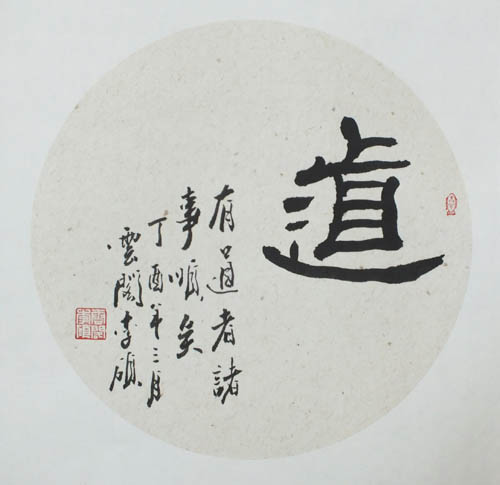 道
有道者諸
事順矣
丁酉年三月
雲閣李硕